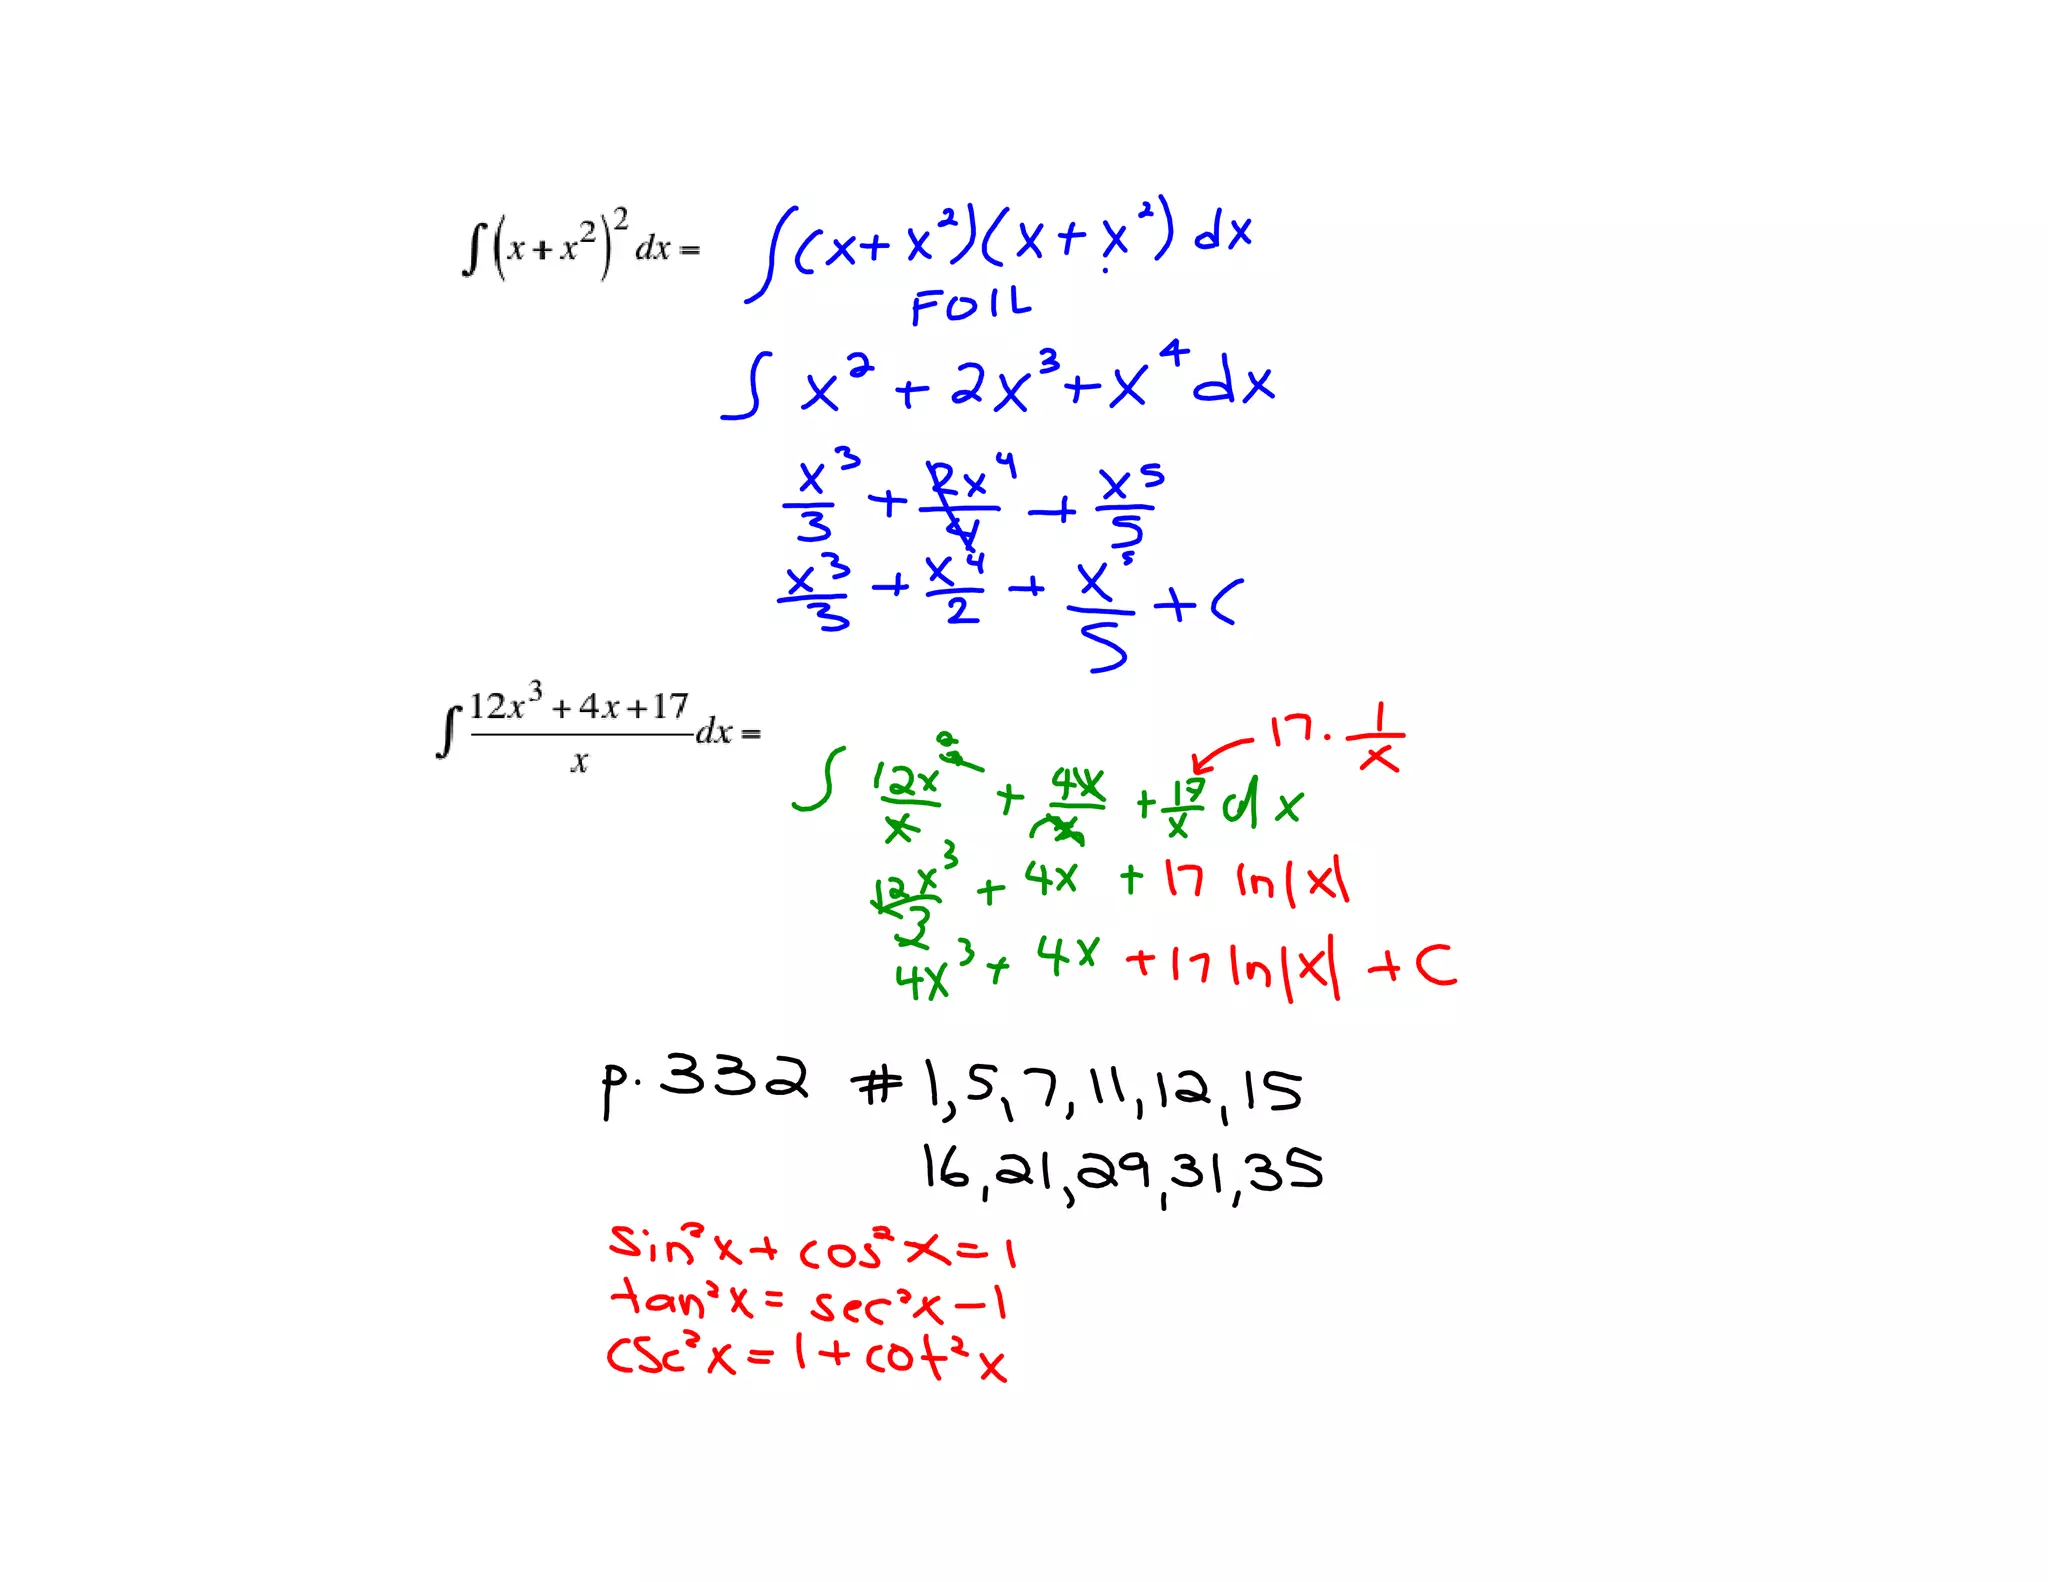 ∫(x + x²)² dx = ∫(x + x²)(x + x²) dx
FOIL
∫ x² + 2x³ + x⁴ dx
x³/3 + 2x⁴/4 + x⁵/5
x³/3 + x⁴/2 + x⁵/5 + C
∫ (12x³ + 4x + 17)/x dx =
17 · 1/x
∫ 12x³/x + 4x/x + 17/x dx
12x³/3 + 4x + 17 ln|x|
4x³ + 4x + 17 ln|x| + C
p. 332 # 1, 5, 7, 11, 12, 15
16, 21, 29, 31, 35
sin²x + cos²x = 1
tan²x = sec²x - 1
csc²x = 1 + cot²x